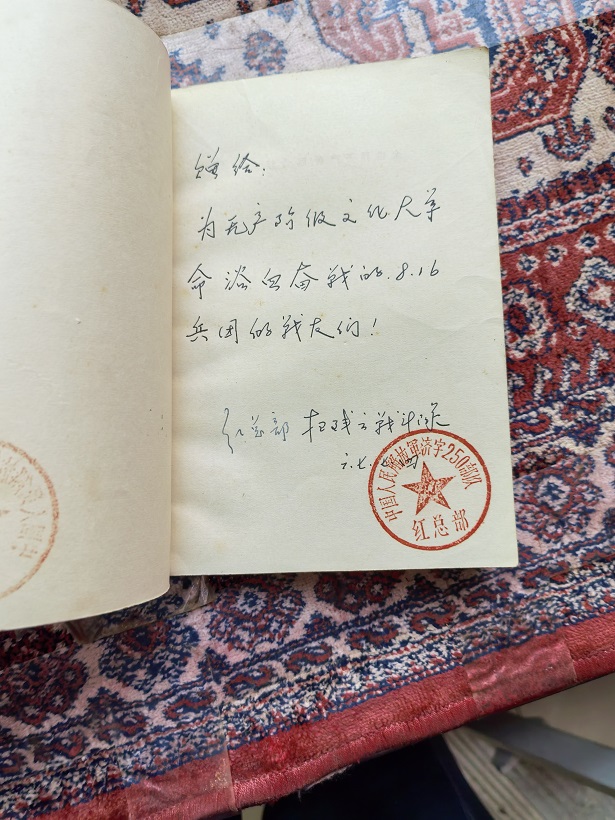 赠给：
为无产阶级文化大革
命浴血奋战的8.16
兵团的战友们！
红总部 扫残云战斗队
中国人民解放軍济字250部队
红总部